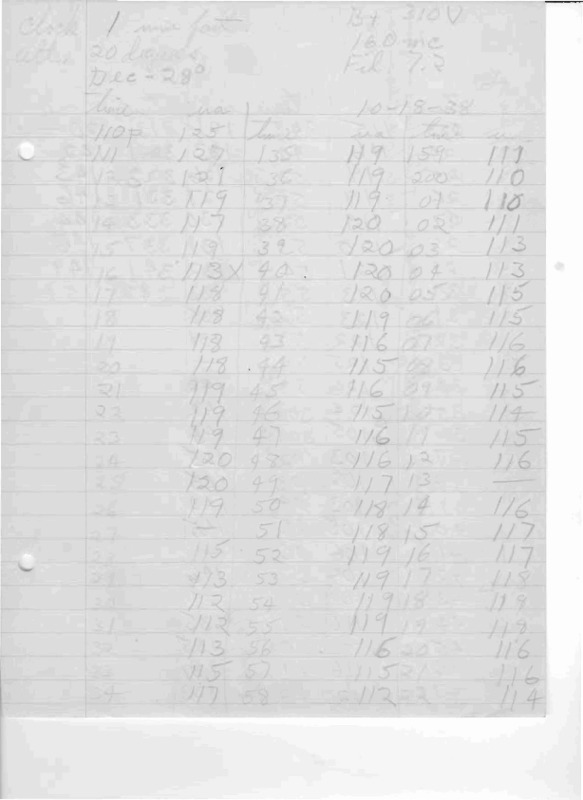 Clock 1 min fast B+ 310V
att. 20 degrees 160 mc
Dec - 28° Fil 7.2
time ua 10-18-38
110p 125 time ua time u
111 127 135 119 159 111
12 121 36 119 200 110
13 119 37 119 01 110
14 117 38 120 02 111
15 119 39 120 03 113
16 113X 40 120 04 113
17 118 41 120 05 115
18 118 42 119 06 115
19 118 43 116 07 116
20 118 44 115 08 116
21 119 45 116 09 115
22 119 46 115 10 114
23 119 47 116 11 115
24 120 48 116 12 116
25 120 49 117 13 —
26 119 50 118 14 116
27 — 51 118 15 117
28 115 52 119 16 117
29 113 53 119 17 118
30 112 54 119 18 119
31 112 55 119 19 118
32 113 56 116 20 116
33 115 57 115 21 116
34 117 58 112 22 114